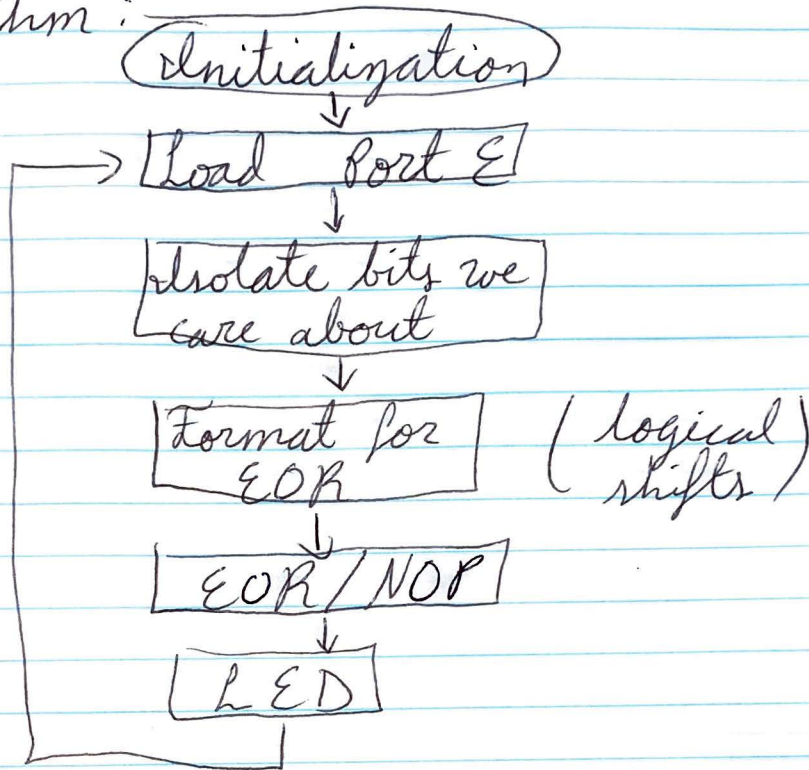 hm :
Initialization
Load Port E
Isolate bits we
care about
Format for
EOR
(logical
shifts)
EOR/NOP
LED